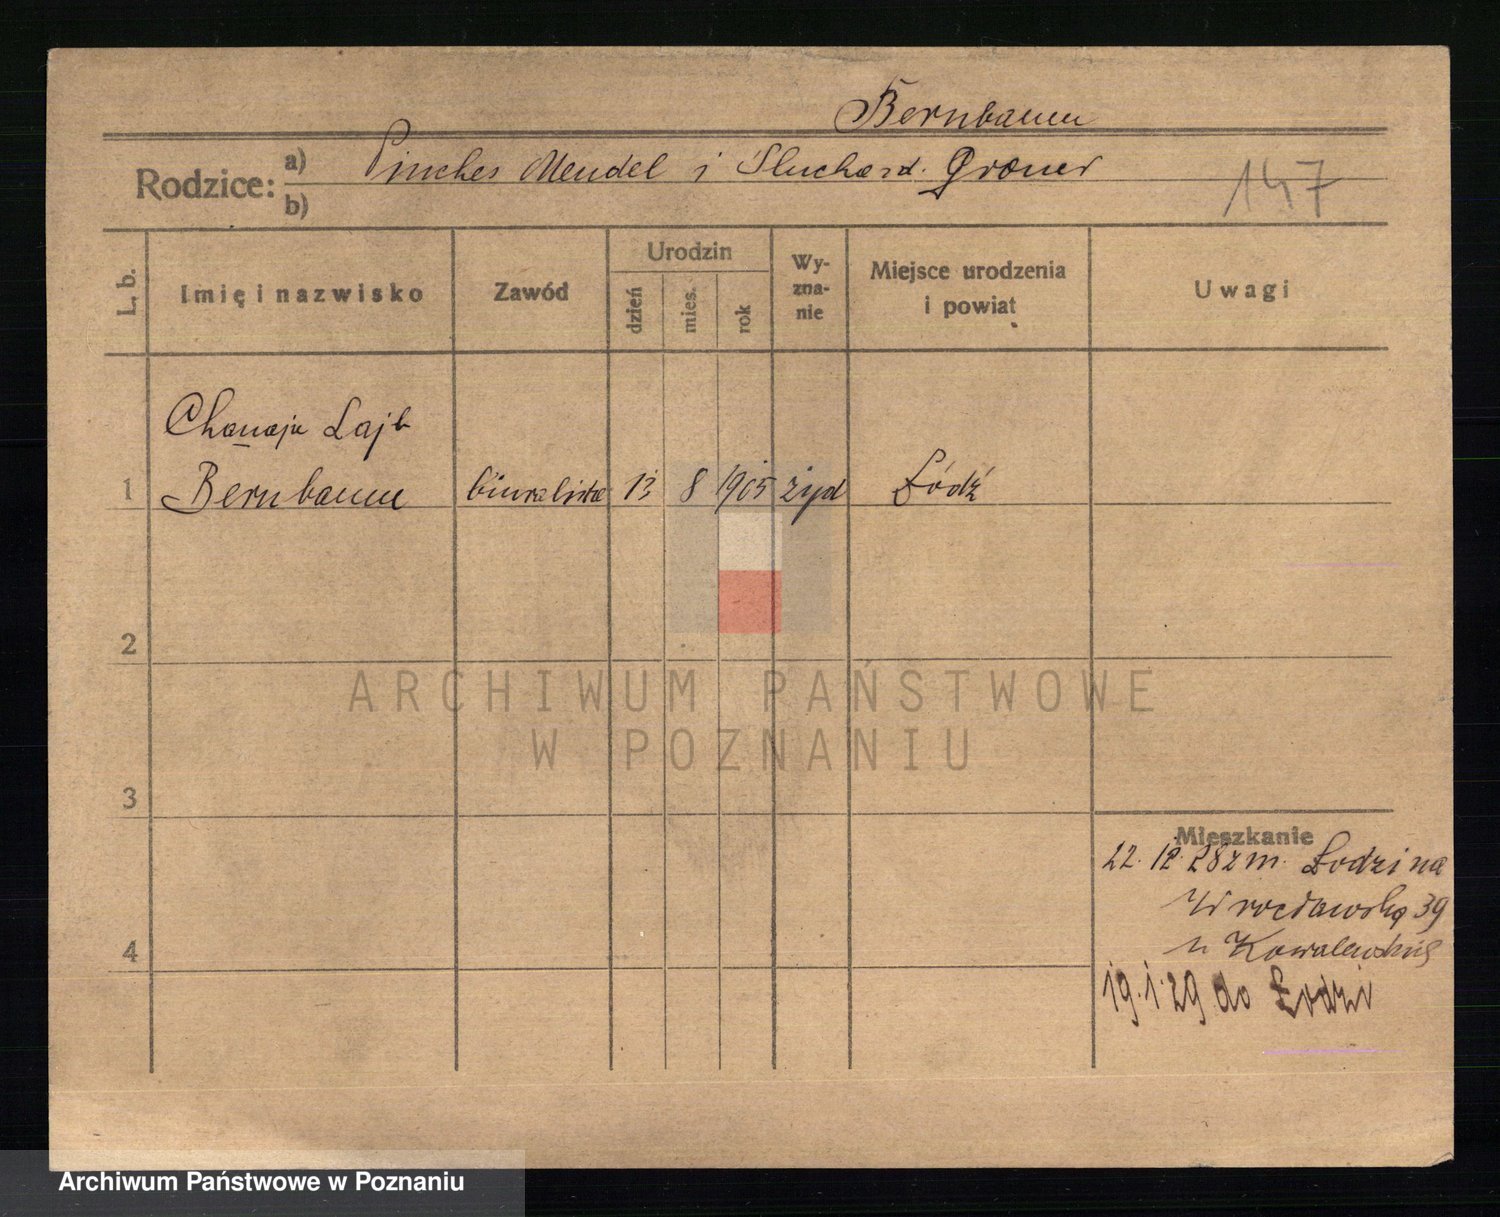 Bernbaum
Rodzice: a) Pinches Mendel i d. Groner
b)
147
L. b. Imię i nazwisko Zawód Urodzin dzień mies. rok Wy-zna-nie Miejsce urodzenia i powiat Uwagi
Chanaja Lajb
1 Bernbaum biuralista 13 8 1905 żyd Łódź
2
ARCHIWUM PAŃSTWOWE
W POZNANIU
3
Mieszkanie
22. 12. 28 z m. Łodzi na
Wrocławską 39
4 u Kowalewskiej
19. 1. 29 do Łodzi
Archiwum Państwowe w Poznaniu